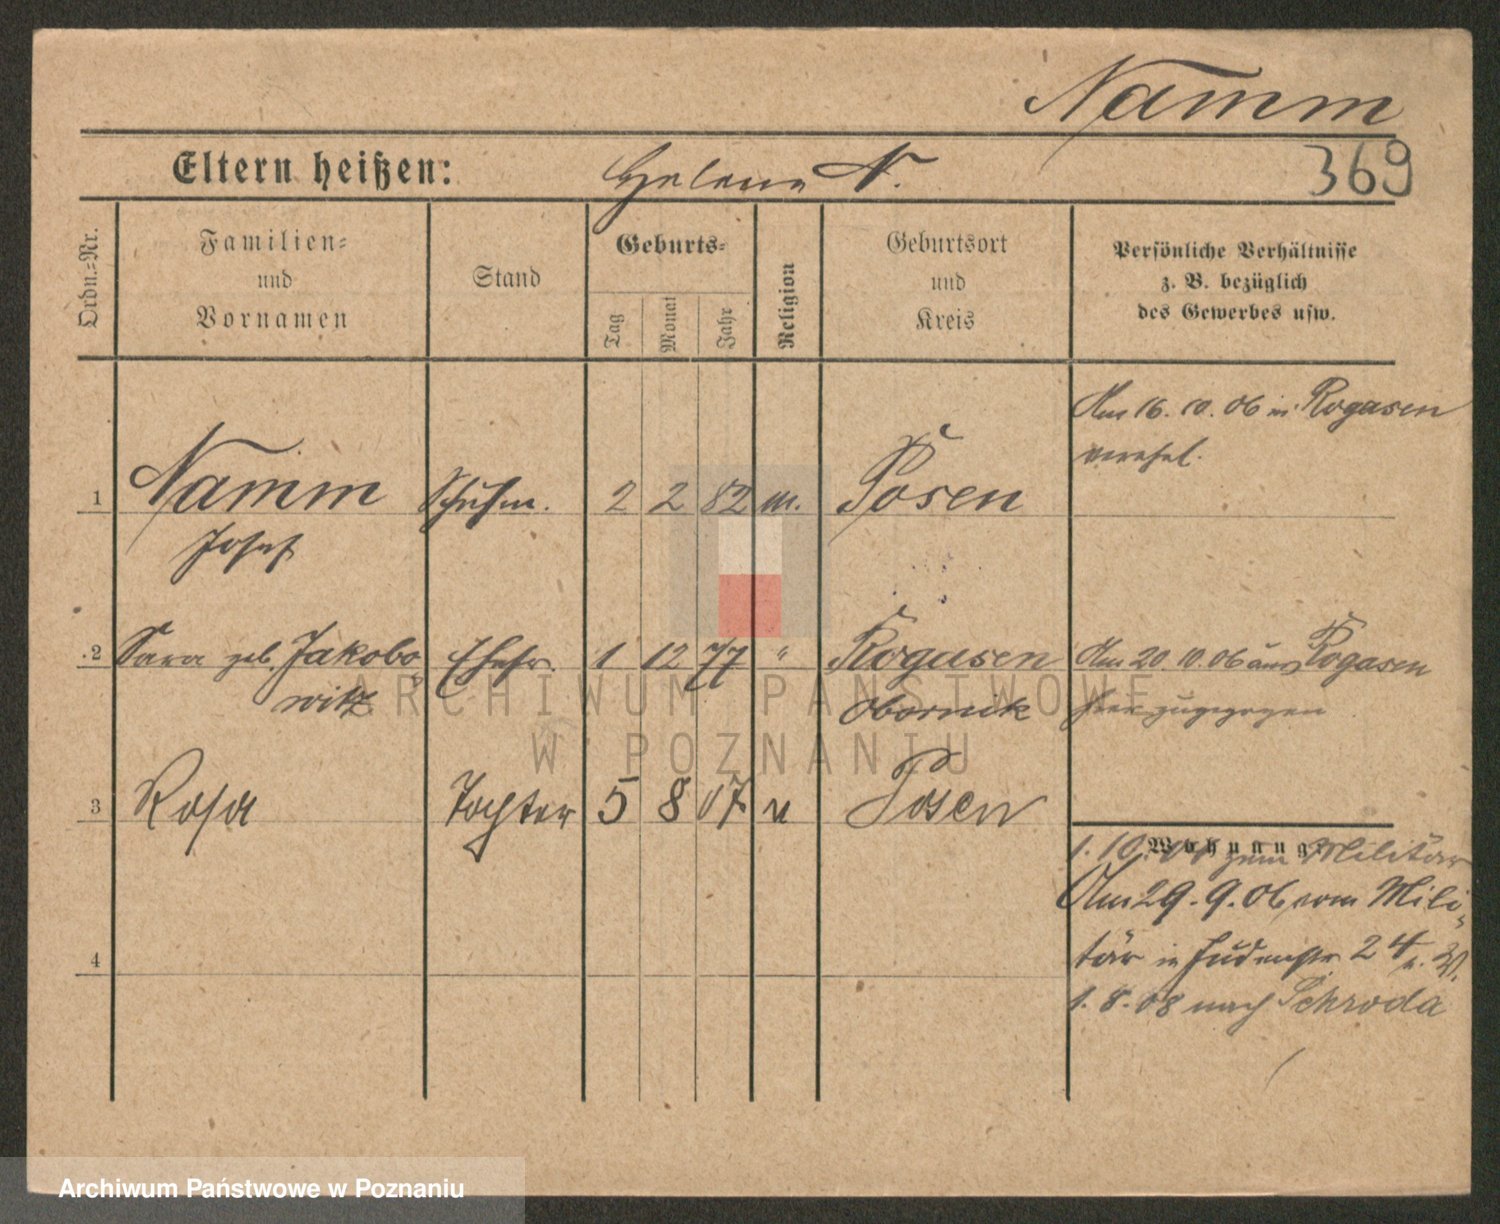 Namm
369
Eltern heißen: Helene N.
Ordn.=Nr.
Familien=
und
Vornamen
Stand
Geburts=
Tag
Monat
Jahr
Religion
Geburtsort
und
Kreis
Persönliche Verhältnisse
z. B. bezüglich
des Gewerbes usw.
Am 16. 10. 06 in Rogasen
verehel.
1 Namm Schuhm. 2 2 82 m. Posen
Josef
2 Sara geb. Jakobo Ehefr. 1 12 77 " Rogasen Am 20. 10. 06 aus Rogasen
witz Obornik hier zugezogen
ARCHIWUM PAŃSTWOWE
W POZNANIU
3 Rosa Tochter 5 8 07 Posen
Wohnung:
1. 10. zum Militär
Am 29. 9. 06 vom Mili-
tär in Judenstr 24 b. W.
1. 8. 08 nach Schroda
4
Archiwum Państwowe w Poznaniu